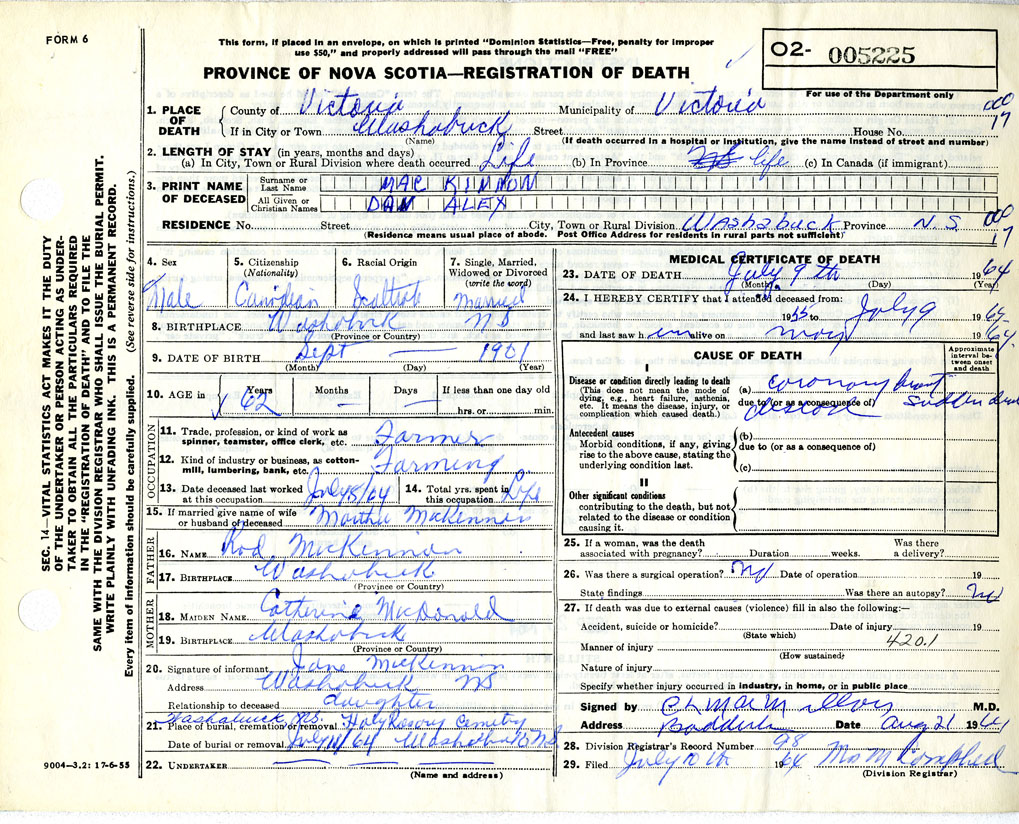 FORM 6
This form, if placed in an envelope, on which is printed "Dominion Statistics—Free, penalty for improper
use $50," and properly addressed will pass through the mail "FREE"
PROVINCE OF NOVA SCOTIA—REGISTRATION OF DEATH
O2- 005225
For use of the Department only
1. PLACE OF DEATH { County of Victoria Municipality of Victoria 000
If in City or Town Washabuck Street House No. 17
(Name) (If death occurred in a hospital or institution, give the name instead of street and number)
2. LENGTH OF STAY (in years, months and days)
(a) In City, Town or Rural Division where death occurred Life (b) In Province life (c) In Canada (if immigrant)
3. PRINT NAME OF DECEASED
Surname or Last Name MAC KINNON
All Given or Christian Names DAN ALEX
RESIDENCE No. Street City, Town or Rural Division Washabuck Province N.S. 000
(Residence means usual place of abode. Post Office Address for residents in rural parts not sufficient) 17
SEC. 14—VITAL STATISTICS ACT MAKES IT THE DUTY
OF THE UNDERTAKER OR PERSON ACTING AS UNDER-
TAKER TO OBTAIN ALL THE PARTICULARS REQUIRED
IN THE "REGISTRATION OF DEATH" AND TO FILE THE
SAME WITH THE DIVISION REGISTRAR WHO SHALL ISSUE THE BURIAL PERMIT.
WRITE PLAINLY WITH UNFADING INK. THIS IS A PERMANENT RECORD.
Every item of information should be carefully supplied. (See reverse side for instructions.)
4. Sex
Male
5. Citizenship
(Nationality)
Canadian
6. Racial Origin
Scottish
7. Single, Married,
Widowed or Divorced
(write the word)
Married
8. BIRTHPLACE Washabuck NS
(Province or Country)
9. DATE OF BIRTH Sept — 1901
(Month) (Day) (Year)
10. AGE in { Years Months Days If less than one day old
62 — — hrs. or min.
OCCUPATION
11. Trade, profession, or kind of work as
spinner, teamster, office clerk, etc. Farmer
12. Kind of industry or business, as cotton-
mill, lumbering, bank, etc. Farming
13. Date deceased last worked
at this occupation July 8/64
14. Total yrs. spent in
this occupation Life
15. If married give name of wife
or husband of deceased Martha McKennon
FATHER
16. NAME Rod McKennon
17. BIRTHPLACE Washabuck
(Province or Country)
MOTHER
18. MAIDEN NAME Catherine MacDonald
19. BIRTHPLACE Washabuck
(Province or Country)
20. Signature of informant Jane McKennon
Address Washabuck NS
Relationship to deceased daughter
Washabuck NS.
21. Place of burial, cremation or removal Holy Rosary Cemetery
Date of burial or removal July 11/64 Washabuck NS
22. UNDERTAKER — — —
(Name and address)
9004—3.2: 17-6-55
MEDICAL CERTIFICATE OF DEATH
23. DATE OF DEATH July 9th 1964
(Month) (Day) (Year)
24. I HEREBY CERTIFY that I attended deceased from:
1955 to July 9 1964
and last saw him alive on May 1964.
CAUSE OF DEATH
Approximate
interval be-
tween onset
and death
I
Disease or condition directly leading to death
(This does not mean the mode of
dying, e.g., heart failure, asthenia,
etc. It means the disease, injury, or
complication which caused death.)
(a) coronary heart
due to (or as a consequence of)
disease sudden
Antecedent causes
Morbid conditions, if any, giving
rise to the above cause, stating the
underlying condition last.
(b)
due to (or as a consequence of)
(c)
II
Other significant conditions
contributing to the death, but not
related to the disease or condition
causing it.
25. If a woman, was the death Was there
associated with pregnancy? Duration weeks. a delivery?
26. Was there a surgical operation? No Date of operation 19
State findings Was there an autopsy? No
27. If death was due to external causes (violence) fill in also the following:—
Accident, suicide or homicide? Date of injury 19
(State which)
Manner of injury 420.1
(How sustained)
Nature of injury
Specify whether injury occurred in industry, in home, or in public place
Signed by M.D.
Address Baddeck Date Aug 21 1964
28. Division Registrar's Record Number 98
29. Filed July 10th 1964 Mrs M Campbell
(Division Registrar)